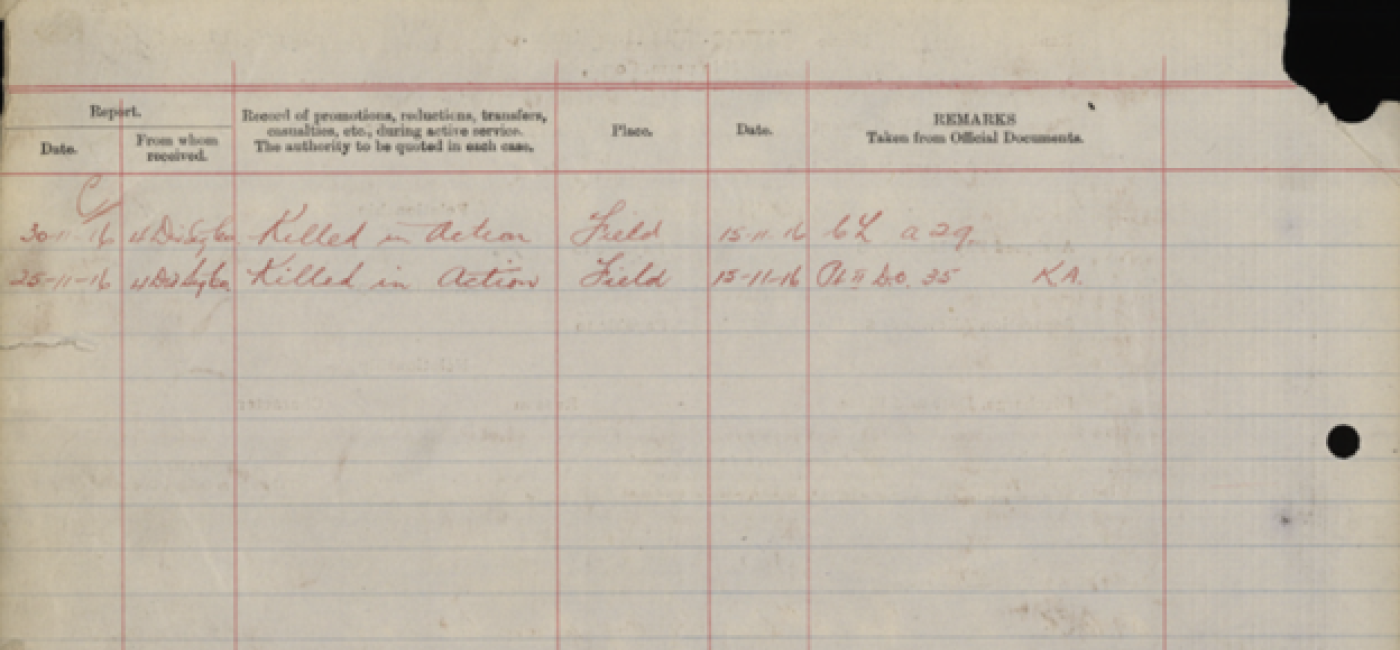 Report.
Date.
From whom received.
Record of promotions, reductions, transfers,
casualties, etc., during active service.
The authority to be quoted in each case.
Place.
Date.
REMARKS
Taken from Official Documents.
C
30-11-16 4 Div Sig Co Killed in Action Field 15-11-16 CL a 29.
25-11-16 4 Div Sig Co Killed in Action Field 15-11-16 Pt II D.O. 35 K.A.